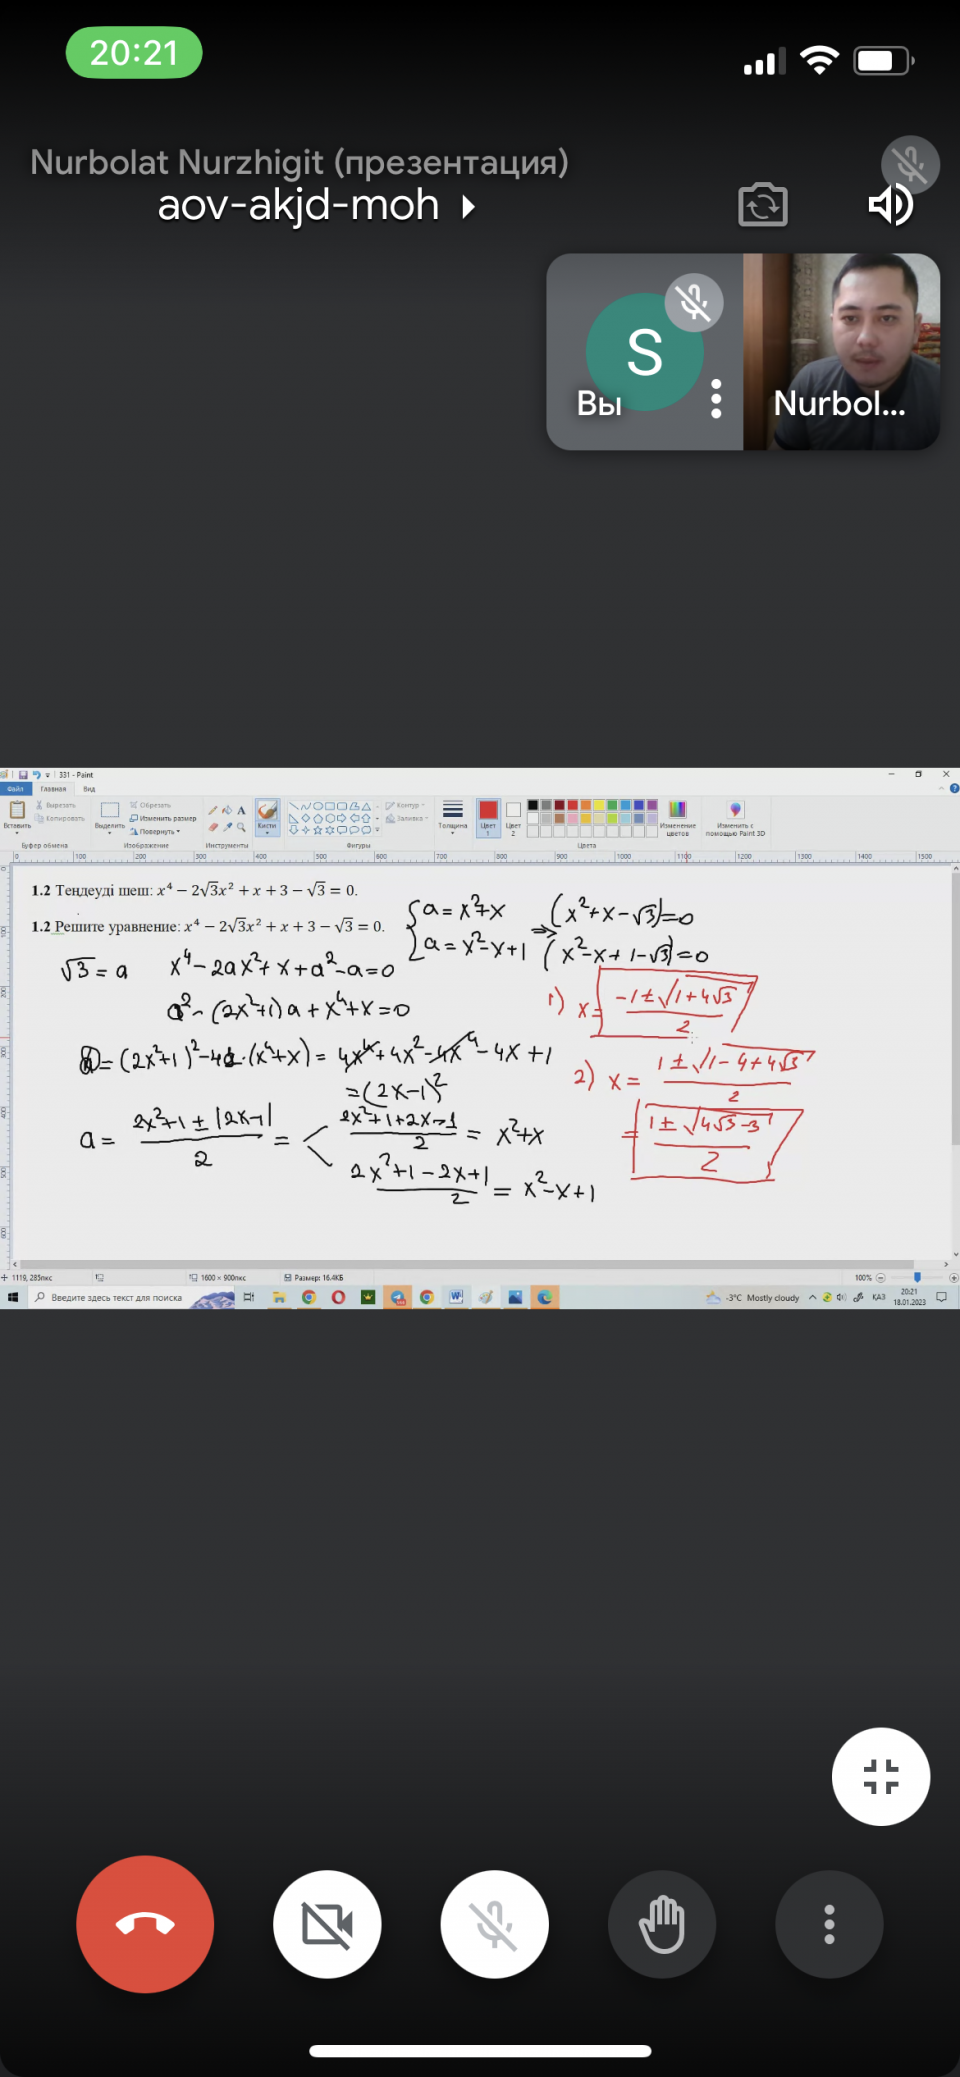 20:21
Nurbolat Nurzhigit (презентация)
aov-akjd-moh
S
Вы
Nurbol...
331 - Paint
Файл Главная Вид
Вставить
Вырезать
Копировать
Буфер обмена
Выделить
Обрезать
Изменить размер
Повернуть
Изображение
Инструменты
Кисти
Контур
Заливка
Фигуры
Толщина
Цвет 1
Цвет 2
Цвета
Изменение цветов
Изменить с помощью Paint 3D
0 100 200 300 400 500 600 700 800 900 1000 1100 1200 1300 1400 1500
1.2 Теңдеуді шеш: x⁴ − 2√3x² + x + 3 − √3 = 0.
1.2 Решите уравнение: x⁴ − 2√3x² + x + 3 − √3 = 0.
√3 = a x⁴ − 2ax² + x + a² − a = 0
a² − (2x²+1)a + x⁴ + x = 0
D = (2x²+1)² − 4·(x⁴+x) = 4x⁴ + 4x² − 4x⁴ − 4x + 1
= (2x−1)²
a = (2x²+1 ± |2x−1|)/2 =
(2x²+1+2x−1)/2 = x²+x
(2x²+1−2x+1)/2 = x²−x+1
a = x²+x ⇒ (x²+x−√3)=0
a = x²−x+1 (x²−x+1−√3)=0
1) x = (−1±√(1+4√3))/2
2) x = (1±√(1−4+4√3))/2
= (1±√(4√3−3))/2
1119, 285пкс
1600 × 900пкс
Размер: 16.4КБ
100%
Введите здесь текст для поиска
-3°C Mostly cloudy
ҚАЗ
20:21
18.01.2023